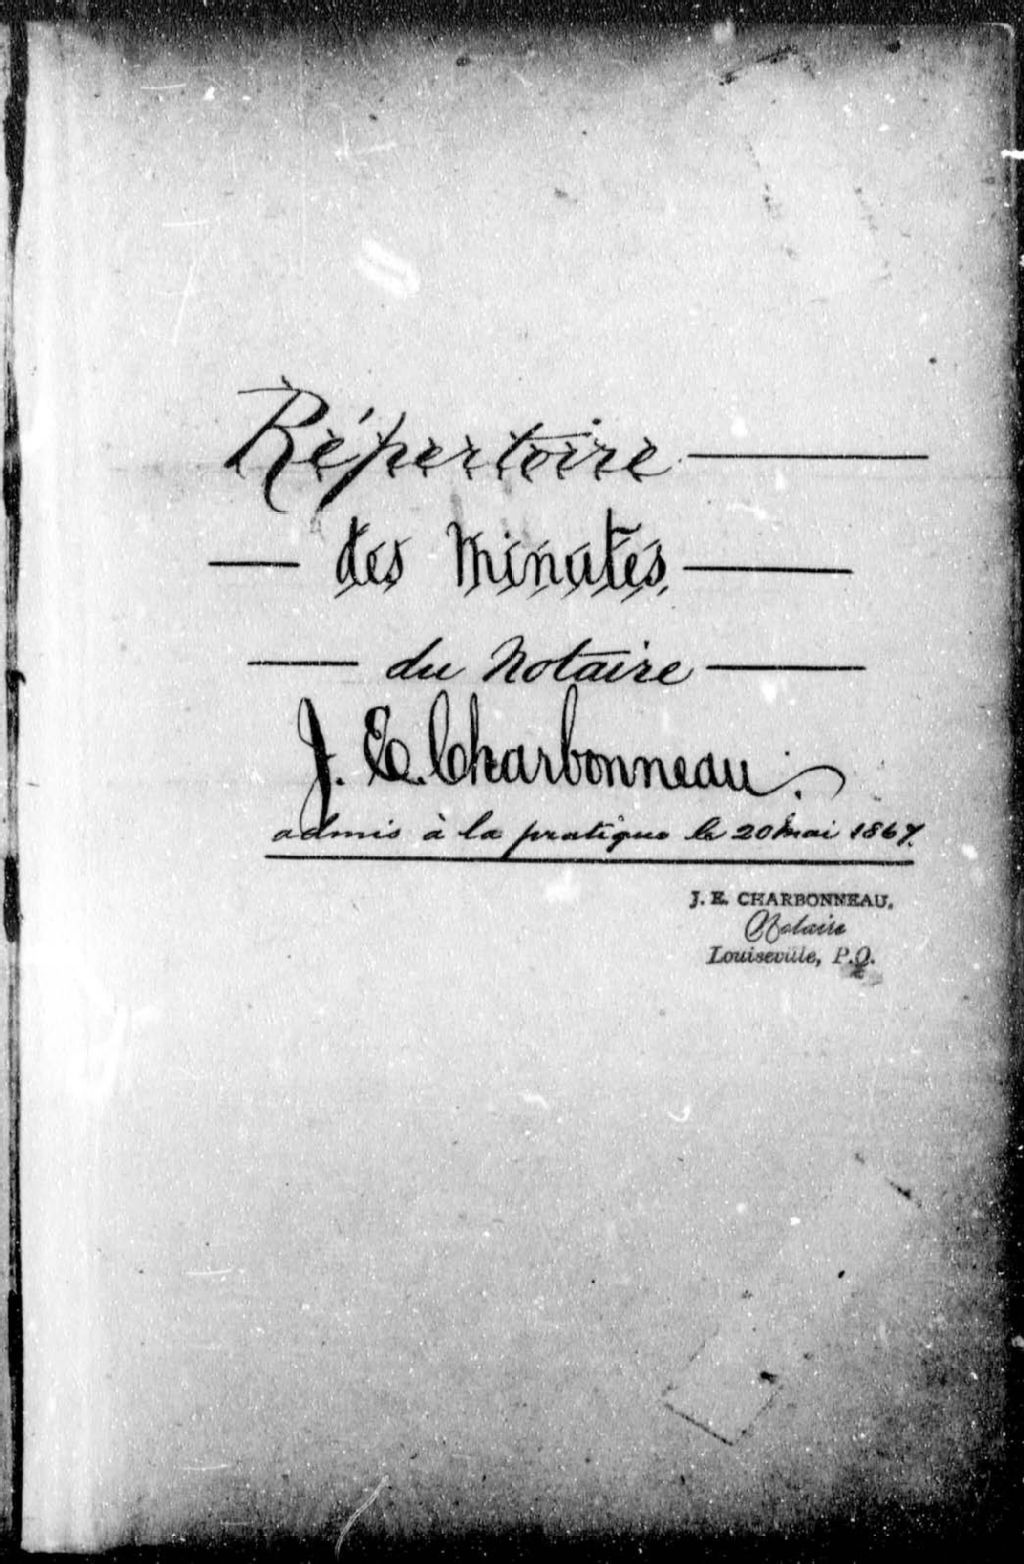 Répertoire
des Minutes
du Notaire
J. E. Charbonneau.
admis à la pratique le 20 Mai 1867.
J. E. CHARBONNEAU,
Notaire
Louiseville, P.Q.